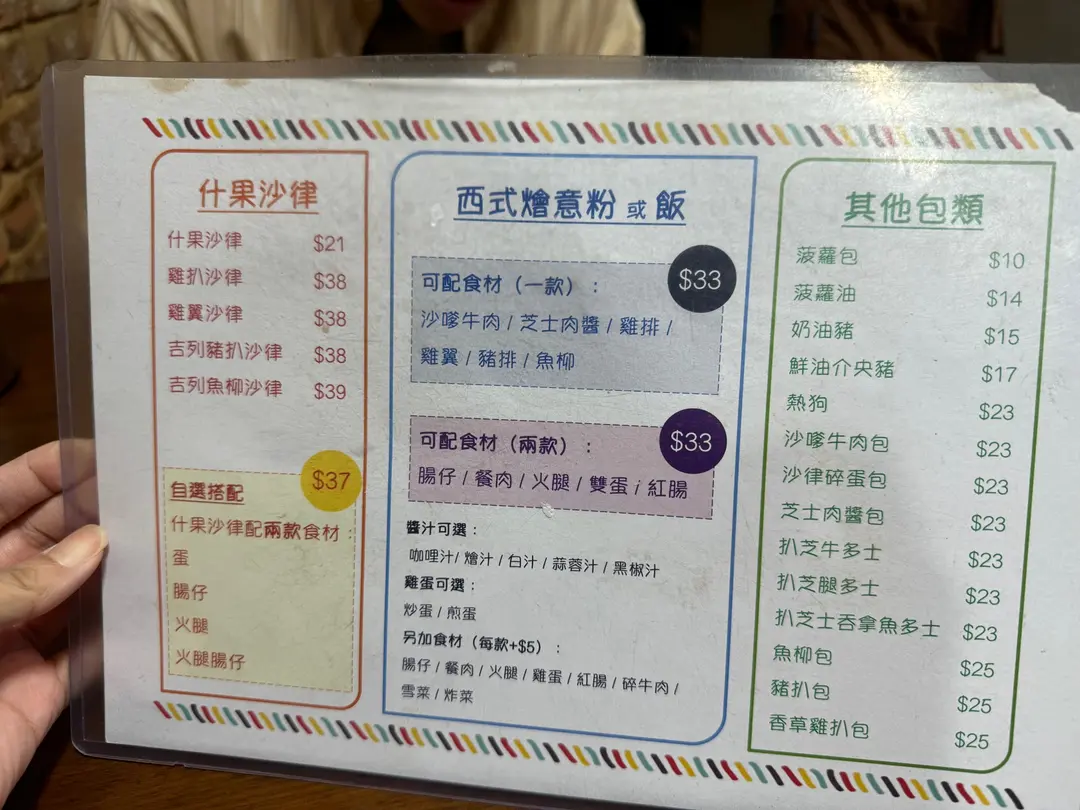 什果沙律
什果沙律 $21
雞扒沙律 $38
雞翼沙律 $38
吉列豬扒沙律 $38
吉列魚柳沙律 $39
$37
自選搭配
什果沙律配兩款食材：
蛋
腸仔
火腿
火腿腸仔
西式燴意粉 或 飯
$33
可配食材（一款）：
沙嗲牛肉 / 芝士肉醬 / 雞排 /
雞翼 / 豬排 / 魚柳
$33
可配食材（兩款）：
腸仔 / 餐肉 / 火腿 / 雙蛋 / 紅腸
醬汁可選：
咖哩汁/ 燴汁 / 白汁 / 蒜蓉汁 / 黑椒汁
雞蛋可選：
炒蛋 / 煎蛋
另加食材（每款+$5）：
腸仔 / 餐肉 / 火腿 / 雞蛋 / 紅腸 / 碎牛肉 /
雪菜 / 炸菜
其他包類
菠蘿包 $10
菠蘿油 $14
奶油豬 $15
鮮油介央豬 $17
熱狗 $23
沙嗲牛肉包 $23
沙律碎蛋包 $23
芝士肉醬包 $23
扒芝牛多士 $23
扒芝腿多士 $23
扒芝士吞拿魚多士 $23
魚柳包 $25
豬扒包 $25
香草雞扒包 $25